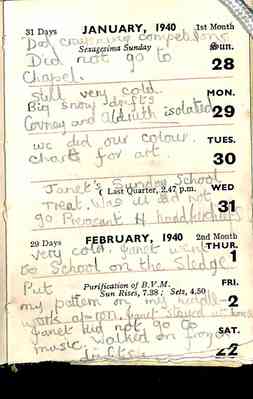 31 Days JANUARY, 1940 1st Month
Did competitions
Sexagesima Sunday Sun.
Did not go to 28
Chapel.
Still very cold. MON.
Big snow drifts 29
Coveney and Aldreth isolated
we did our colour TUES.
charts for art. 30
Janet's Sunday School
( Last Quarter, 2.47 p.m. WED
Treat. Was ill did not
go Present H handkerchiefs 31
29 Days FEBRUARY, 1940 2nd Month
very cold. Janet went THUR.
to School on the Sledge 1
Put Purification of B.V.M. FRI.
Sun Rises, 7.38 ; Sets, 4.50
my pattern on my needle- 2
work apron. Janet stayed at home
Janet did not go to SAT.
music. Walked on frozen
drifts.